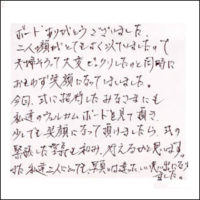 ボードありがとうございました。
二人の顔がとてもよく似ていましたので
夫婦そろって大変ビックリしたのと同時に
おもわず笑顔になってしまいました。
今回、式に招待したみなさまにも
私達のウェルカムボードを見て頂き
少しでも笑顔になって頂けましたら、式の
緊張した空気も和み、行えるかと思います。
また私達二人にとっても写真とは違った思い出になり
ました。